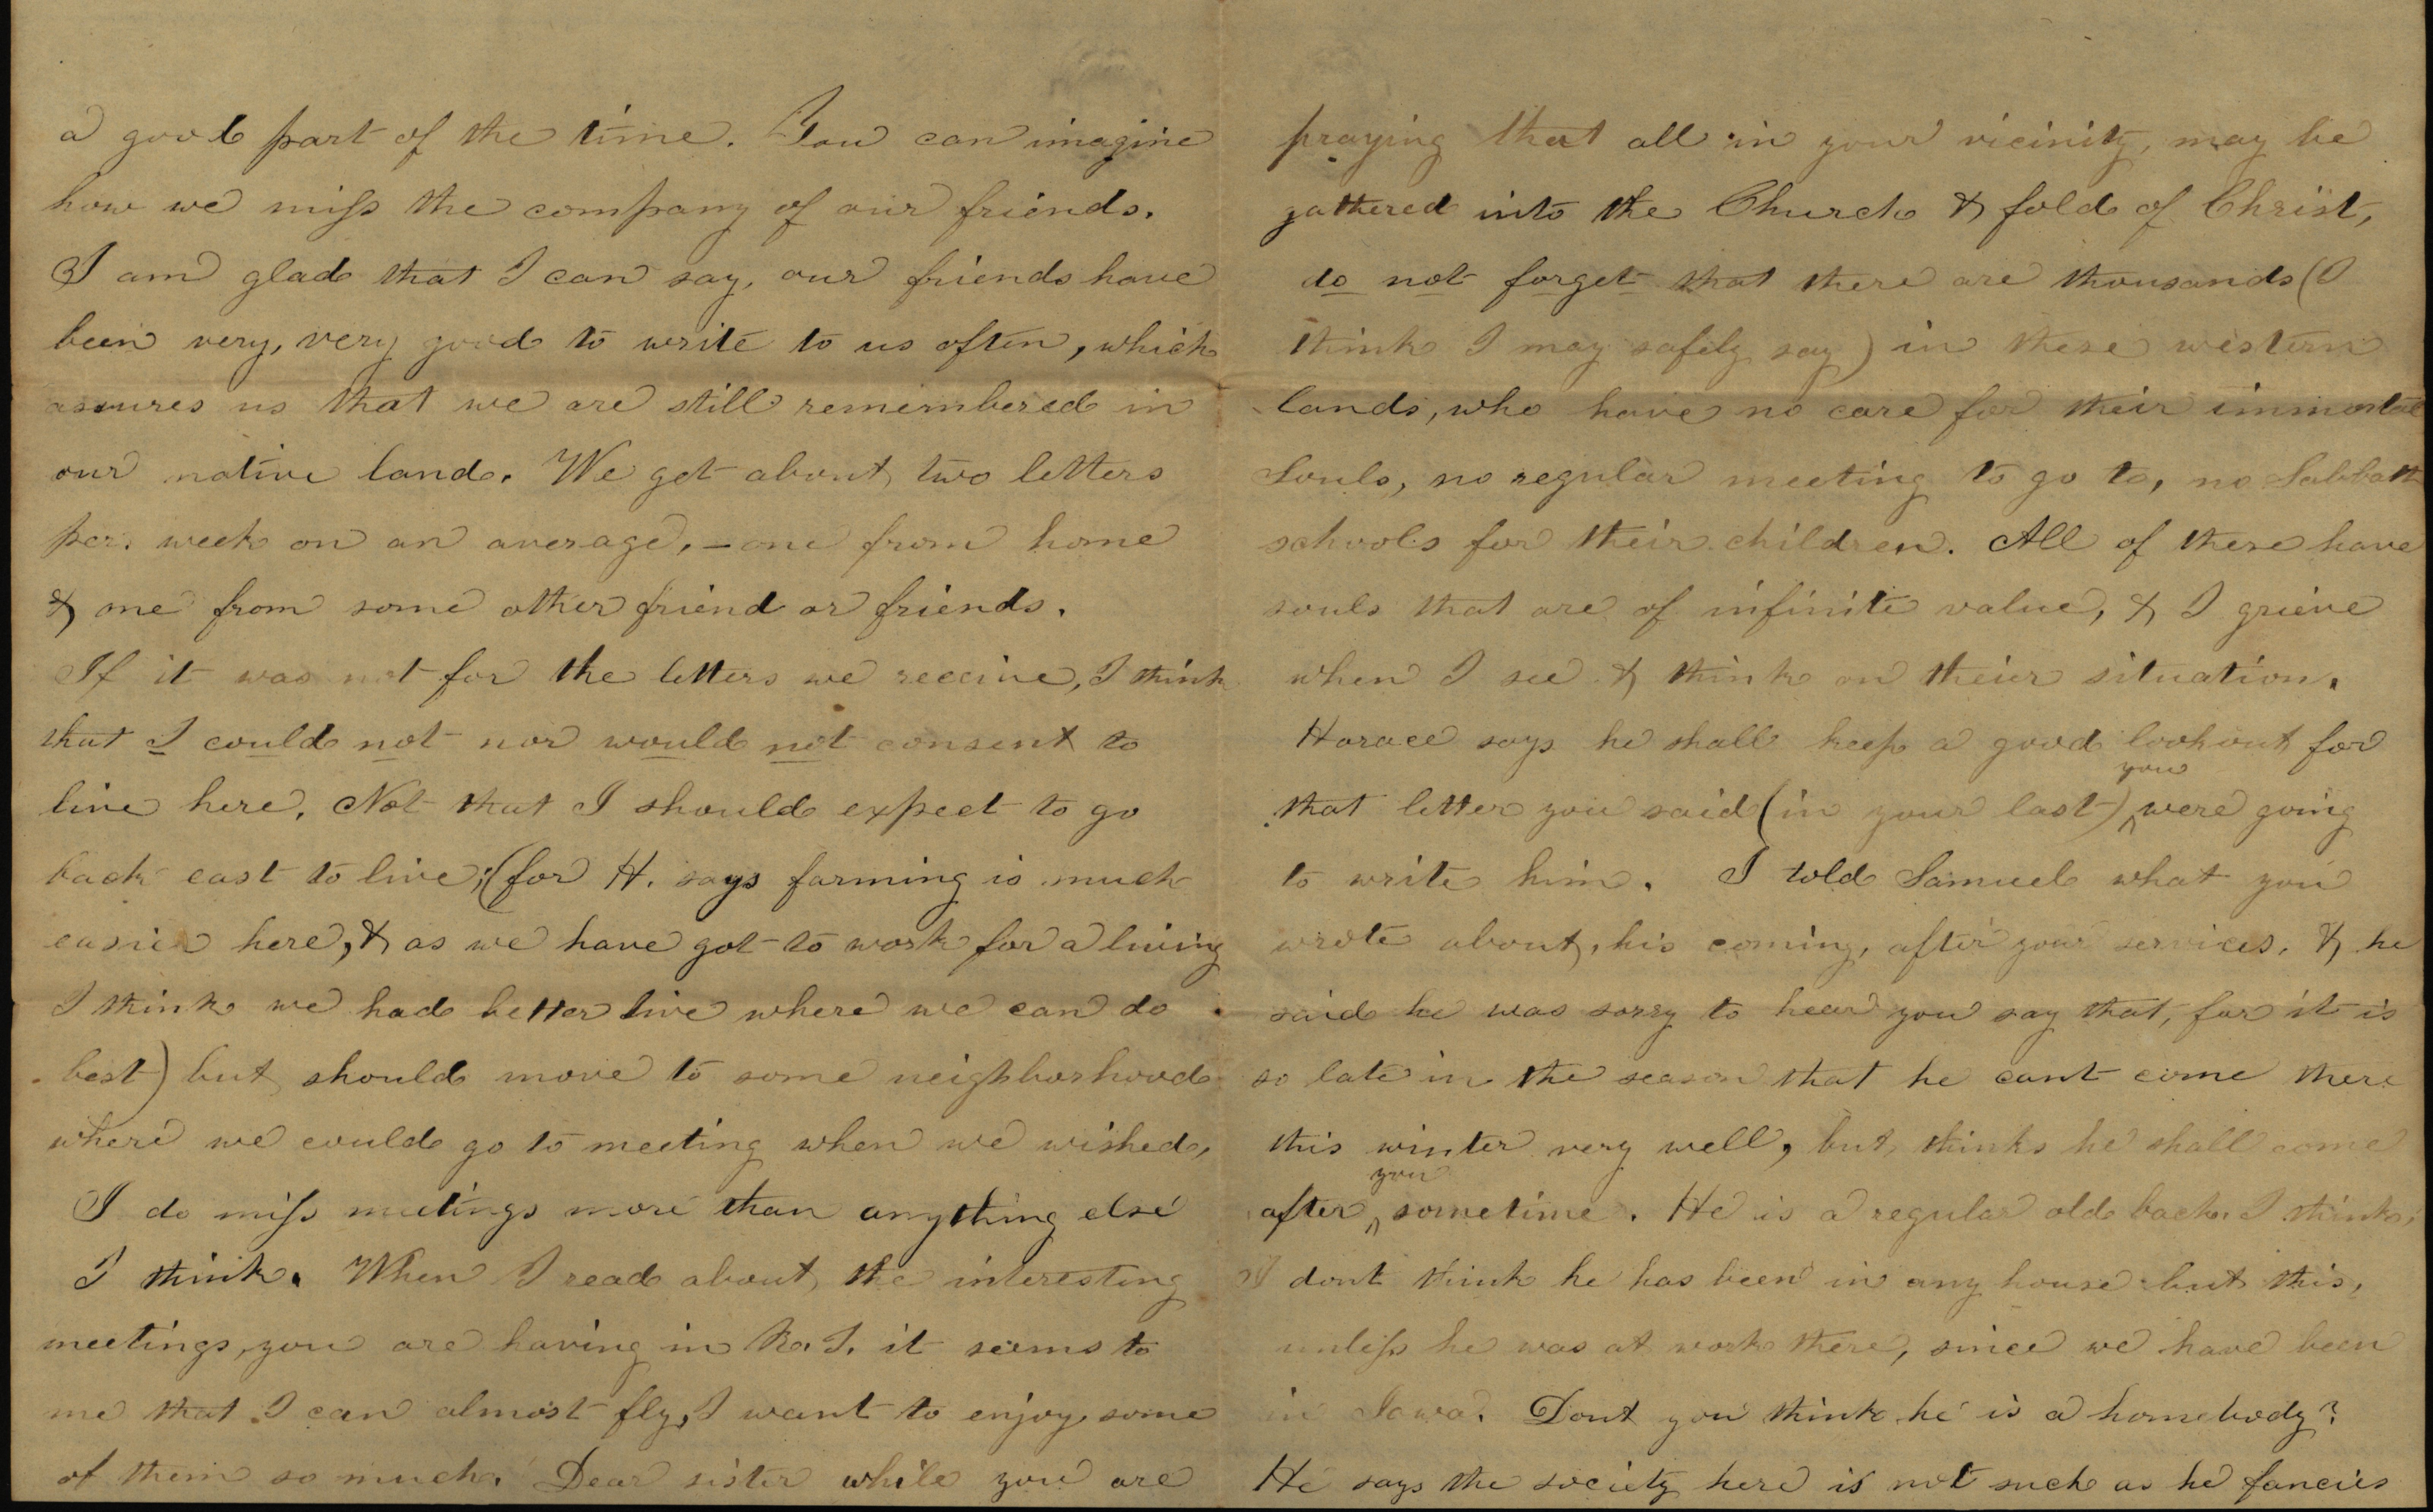 a good part of the time. You can imagine
how we miss the company of our friends.
I am glad that I can say, our friends have
been very, very good to write to us often, which
assures us that we are still remembered in
our native land. We get about two letters
per. week on an average, – one from home
& one from some other friend or friends.
If it was not for the letters we receive, I think
that I could not nor would not consent to
live here. Not that I should expect to go
back east to live; (for H. says farming is much
easier here, & as we have got to work for a living
I think we had better live where we can do
best) but should move to some neighborhood
where we could go to meeting when we wished,
I do miss meetings more than anything else
I think. When I read about the interesting
meetings, you are having in R. I. it seems to
me that I can almost fly, I want to enjoy some
of them so much. Dear sister while you are
praying that all in your vicinity, may be
gathered into the Church & fold of Christ,
do not forget that there are thousands (I
think I may safely say) in these western
lands, who have no care for their immortal
Souls, no regular meeting to go to, no Sabbath
schools for their children. All of these have
souls that are of infinite value, & I grieve
when I see & think on theier situation.
Horace says he shall keep a good lookout for
that letter you said (in your last) you were going
to write him. I told Samuel what you
wrote about, his coming, after your services. & he
said he was sorry to hear you say that, for it is
so late in the season that he cant come there
this winter very well, but thinks he shall come
after you sometime. He is a regular old bach. I think,
I dont think he has been in any house but this,
unless he was at work there, since we have been
in Iowa. Dont you think he is a homebody?
He says the society here is not such as he fancies